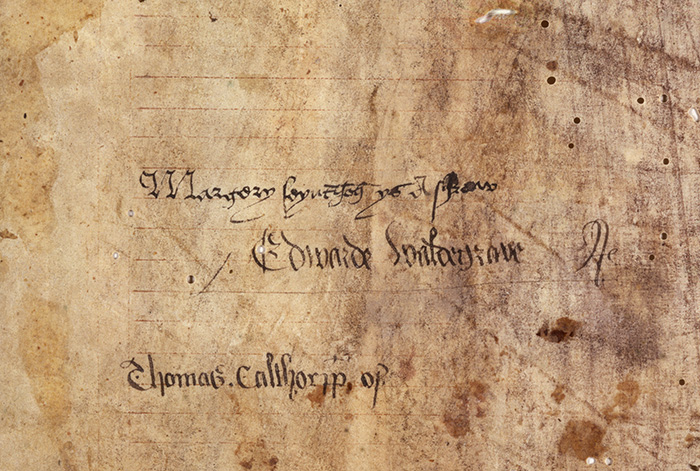 Margery seynt Jhon ys A shrew
Edwarde Waldegrave
Thomas. Calthorpp. of